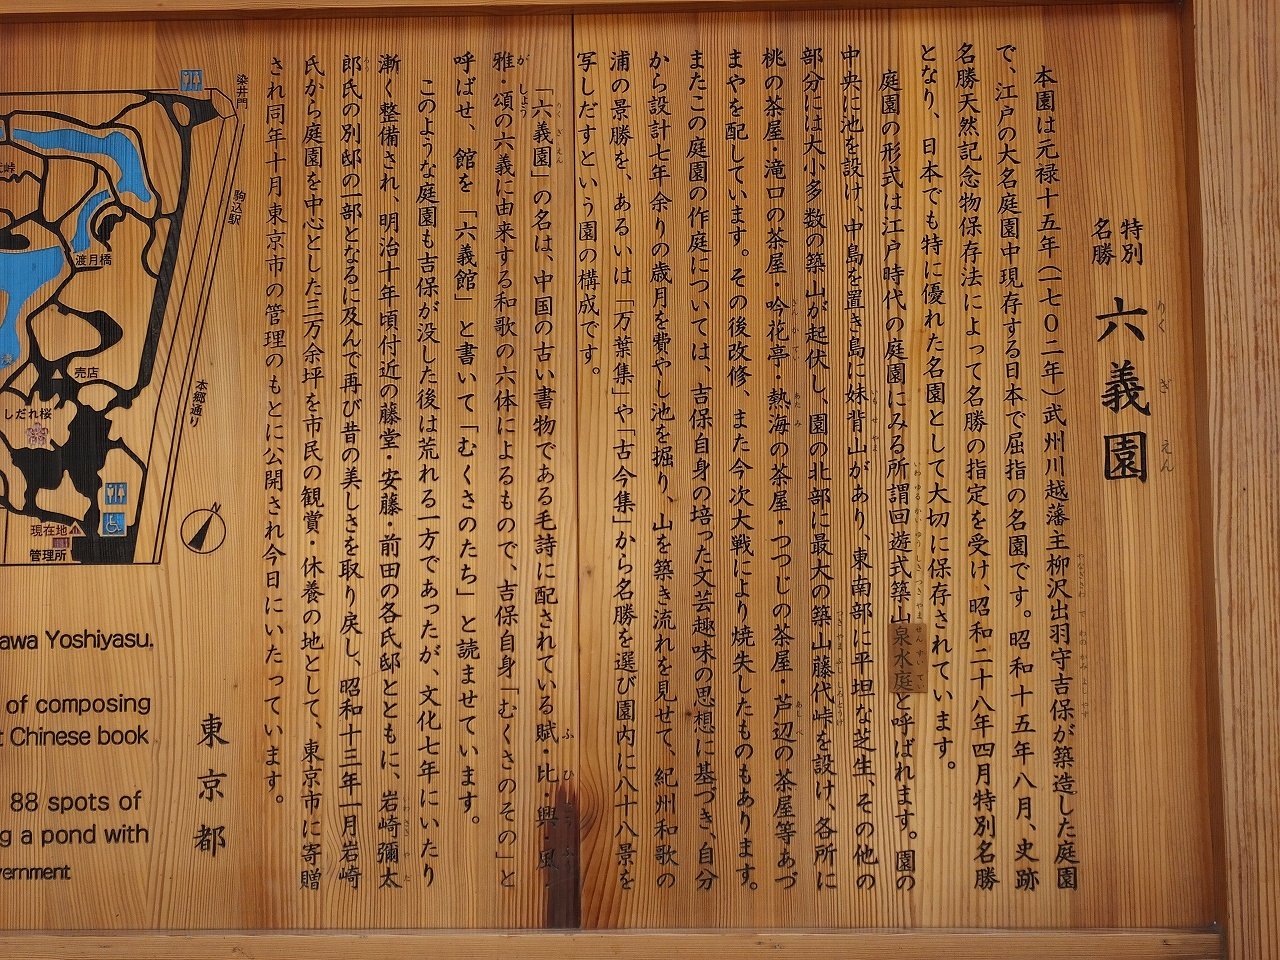 特別
名勝
六義園
りくぎえん
本園は元禄十五年（一七０二年）武州川越藩主柳沢出羽守吉保が築造した庭園
で、江戸の大名庭園中現存する日本で屈指の名園です。昭和十五年八月、史跡
名勝天然記念物保存法によって名勝の指定を受け、昭和二十八年四月特別名勝
となり、日本でも特に優れた名園として大切に保存されています。
庭園の形式は江戸時代の庭園にみる所謂回遊式築山泉水庭と呼ばれます。園の
中央に池を設け、中島を置き島に妹背山があり、東南部に平坦な芝生、その他の
部分には大小多数の築山が起伏し、園の北部に最大の築山藤代峠を設け、各所に
桃の茶屋・滝口の茶屋・吟花亭・熱海の茶屋・つつじの茶屋・芦辺の茶屋等あづ
まやを配しています。その後改修、また今次大戦により焼失したものもあります。
またこの庭園の作庭については、吉保自身の培った文芸趣味の思想に基づき、自分
から設計七年余りの歳月を費やし池を掘り、山を築き流れを見せて、紀州和歌の
浦の景勝を、あるいは「万葉集」や「古今集」から名勝を選び園内に八十八景を
写しだすという園の構成です。
「六義園」の名は、中国の古い書物である毛詩に配されている賦・比・興・風・
雅・頌の六義に由来する和歌の六体によるもので、吉保自身「むくさのその」と
呼ばせ、館を「六義館」と書いて「むくさのたち」と読ませています。
このような庭園も吉保が没した後は荒れる一方であったが、文化七年にいたり
漸く整備され、明治十年頃付近の藤堂・安藤・前田の各氏邸とともに、岩崎彌太
郎氏の別邸の一部となるに及んで再び昔の美しさを取り戻し、昭和十三年一月岩崎
氏から庭園を中心とした三万余坪を市民の観賞・休養の地として、東京市に寄贈
され同年十月東京市の管理のもとに公開され今日にいたっています。
東京都
染井門
駒込駅
渡月橋
売店
しだれ桜
本郷通り
現在地
管理所
N
awa Yoshiyasu.
of composing
t Chinese book
88 spots of
g a pond with
vernment